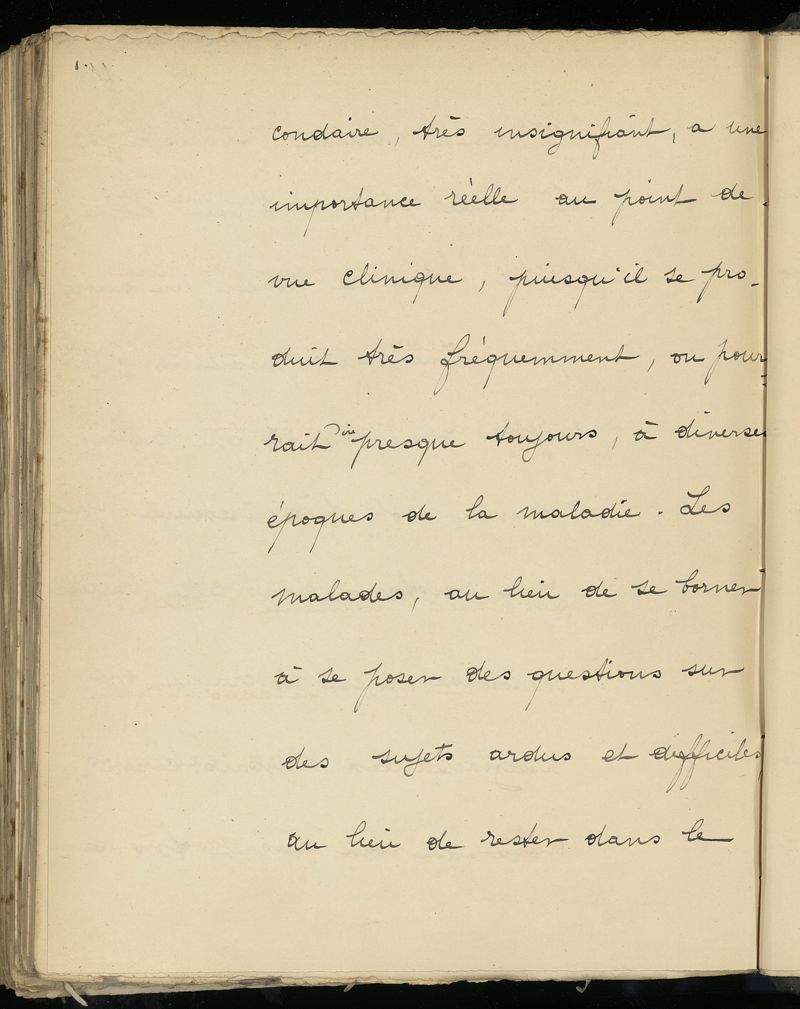 condaire, très insignifiant, a une
importance réelle au point de
vue clinique, puisqu'il se pro-
duit très fréquemment, on pour-
rait dire presque toujours, à diverses
époques de la maladie. Les
malades, au lieu de se borner
à se poser des questions sur
des sujets ardus et difficiles,
au lieu de rester dans le